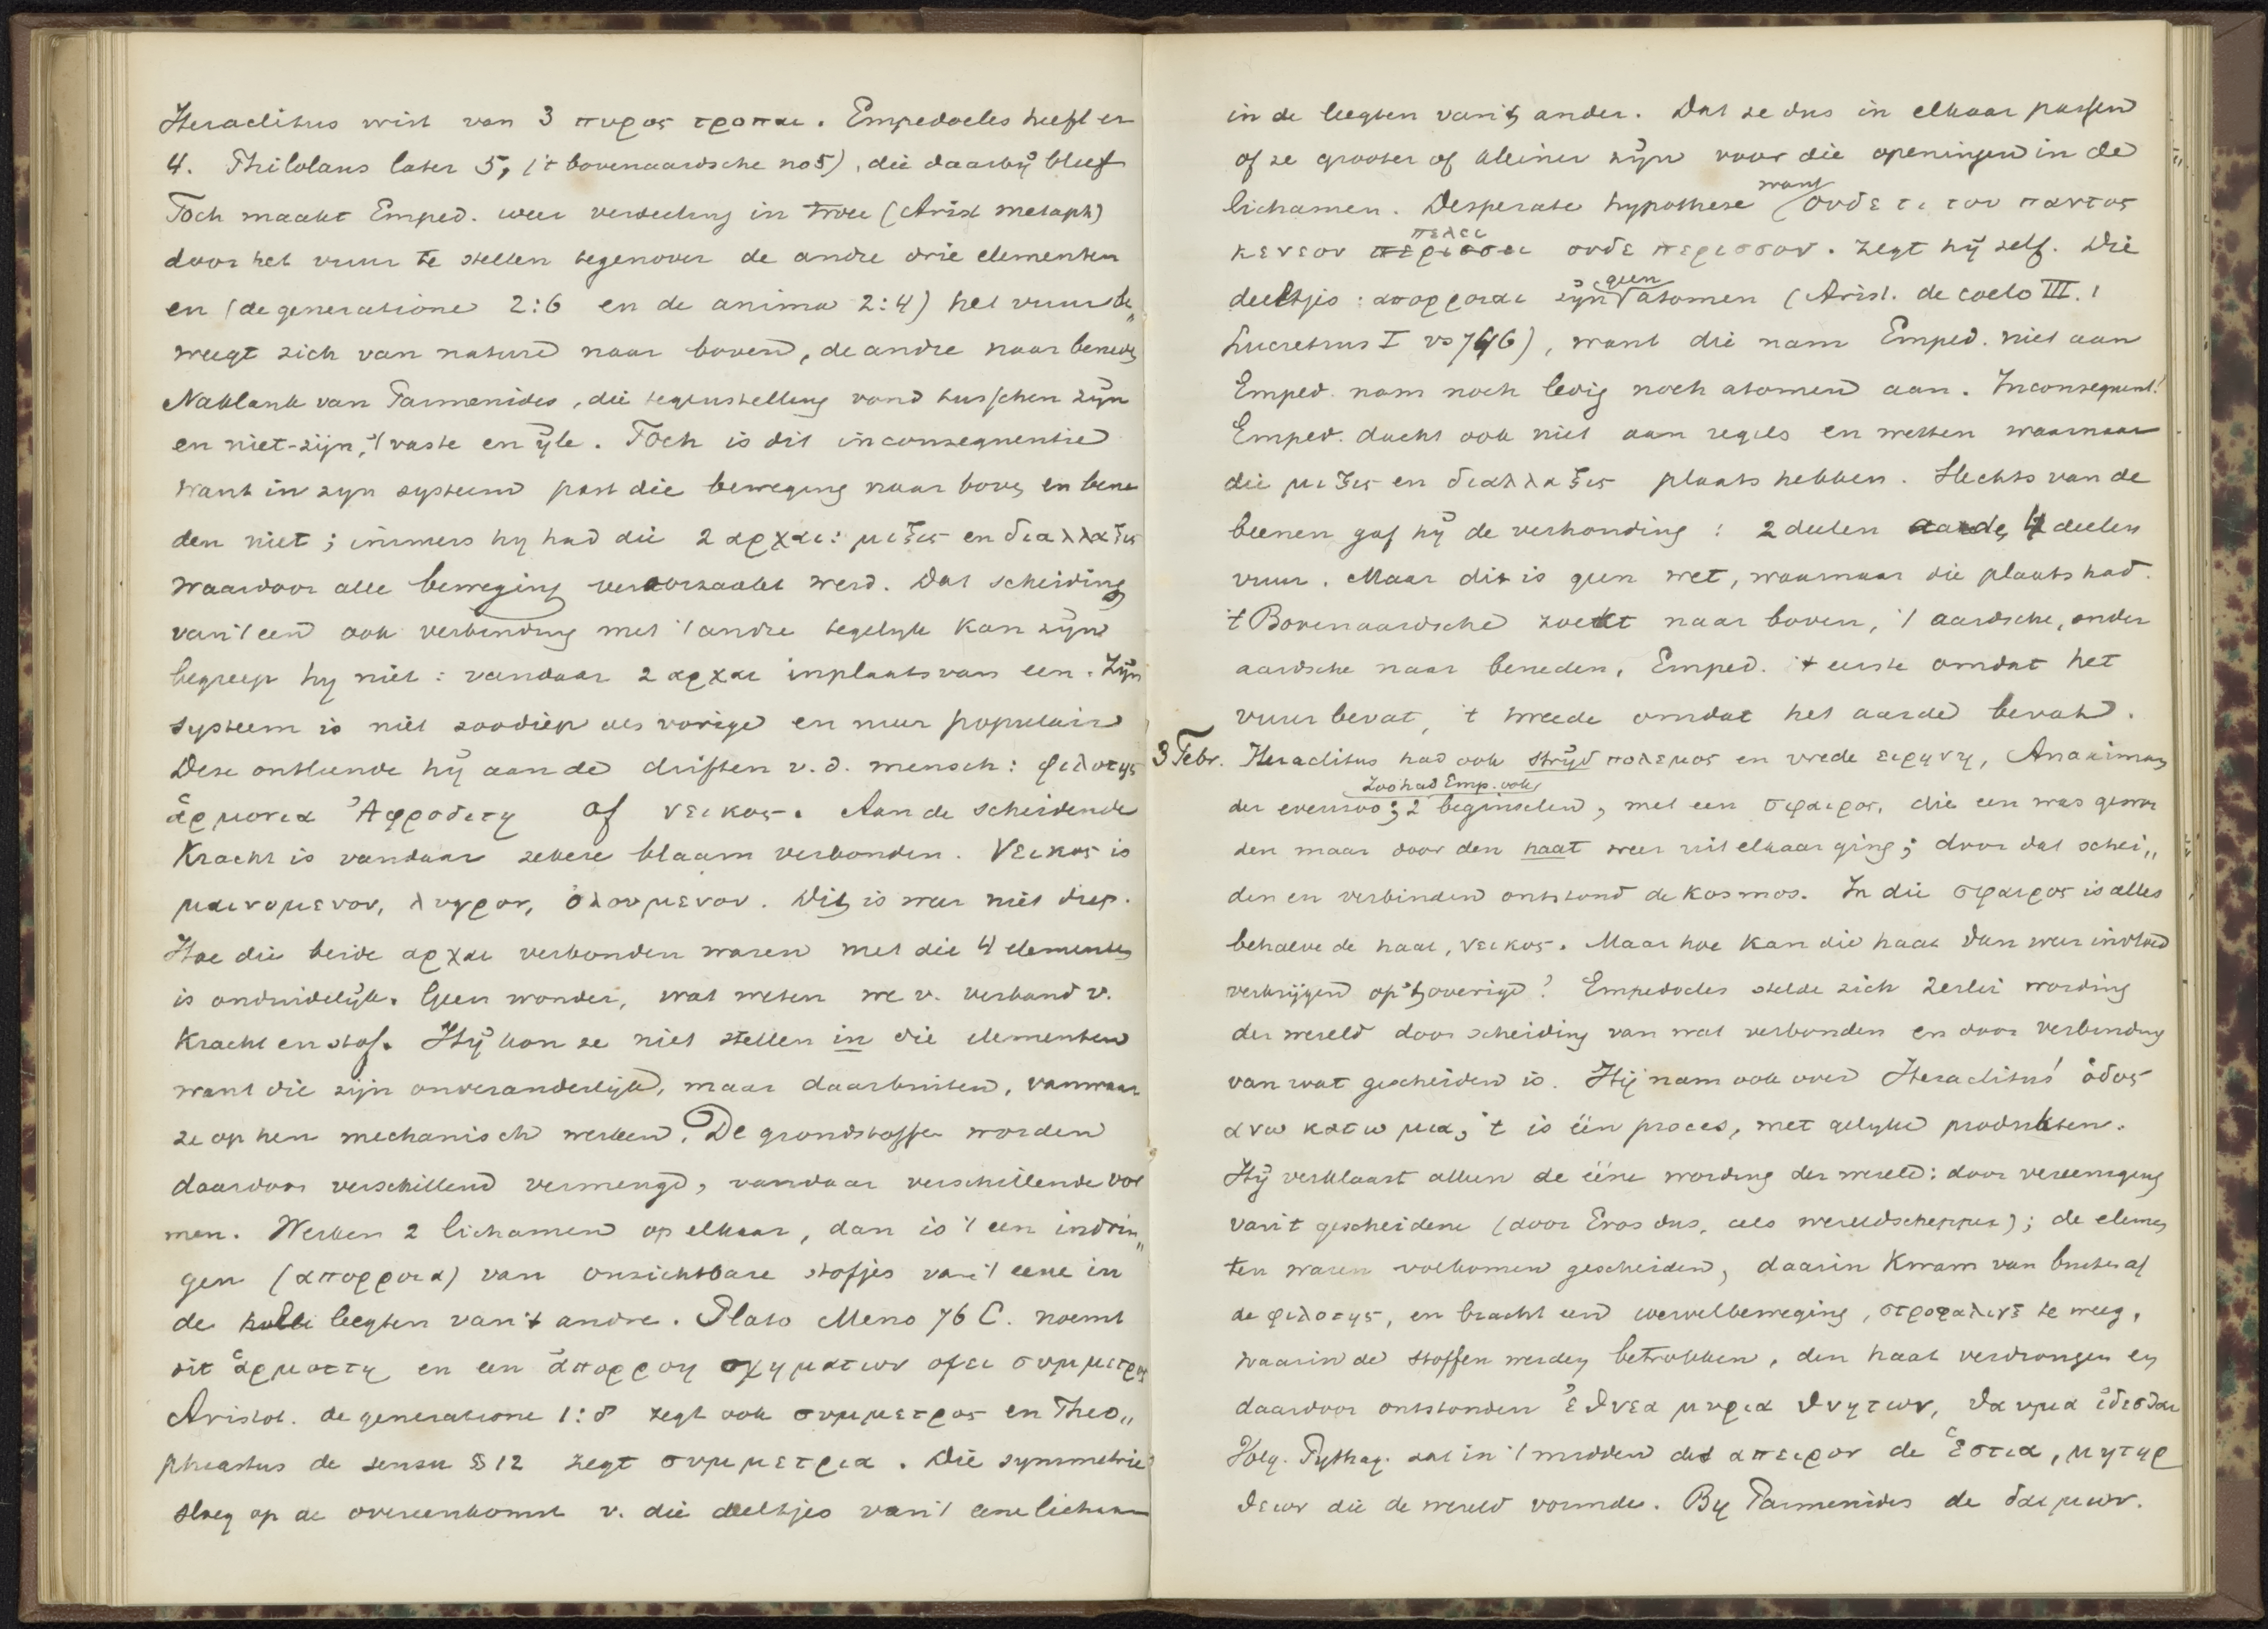 Heraclitus wist van 3 πυρος τροπαι. Empedocles heeft er
4. Philolaus later 5, ('t bovenaardsche no 5), die daarbij bleef
Toch maakt Emped. weer verdeeling in twee (Arist metaph)
door het vuur te stellen tegenover de andre drie elementen
en (de generatione 2:6 en de anima 2:4) het vuur be„
weegt zich van nature naar boven, de andre naar beneden
Naklank van Parmenides, die tegenstelling vond tusschen zijn
en niet-zijn, 't vaste en ijle. Toch is dit inconsequentie
want in zyn systeem past die beweging naar boven en bene
den niet; immers hy had die 2 αρχαι: μιξις en διαλλαξις
waardoor alle beweging veroorzaakt werd. Dat scheiding
van 't een ook verbinding met 't andre tegelyk kan zijn
begreep hy niet: vandaar 2 αρχαι inplaats van een. Zijn
systeem is niet zoo diep als vorige en meer populair
Deze ontleende hij aan de driften v. d. mensch: φιλοτης
ἁρμονια Ἀφροδιτη of νεικος. Aan de scheidende
Kracht is vandaar zekere blaam verbonden. Νεικος is
μαινομενον, λυγρον, ὀλουμενον. Dit is weer niet diep.
Hoe die beide αρχαι verbonden waren met die 4 elementen
is onduidelijk. Geen wonder, wat weten we v. verband v.
Kracht en stof. Hij kon ze niet stellen in die elementen
want die zijn onveranderlijk, maar daarbuiten, vanwaar
ze op hen mechanisch werken. De grondstoffen worden
daardoor verschillend vermengd, vandaar verschillende vor
men. Werken 2 lichamen op elkaar, dan is 't een indrin„
gen (απορροια) van onzichtbare stofjes van 't eene in
de leegten van 't andre. Plato Meno 76 C. noemt
dit ἁρμοττη en een ἀπορροη σχηματων οψει συμμετρος
Aristot. de generatione 1:8 zegt ook συμμετρος en Theo„
phrastus de sensu § 12 zegt συμμετρια. Die symmetrie
sloeg op de overeenkomst v. die deeltjes van 't eene lichaam
in de leegten van 't ander. Dat ze dus in elkaar passen
of ze grooter of kleiner zijn voor die openingen in de
lichamen. Desperate hypothese want ουδε τι του παντος
κενεον πελει ουδε περισσον. zegt hij zelf. Die
deeltjes: απορροιαι zijn geen atomen (Arist. de coelo III. 1
Lucretius I vs 746), want die nam Emped. niet aan
Emped. nam noch ledig noch atomen aan. Inconsequent!
Emped. dacht ook niet aan regels en wetten waarnaar
die μιξις en διαλλαξις plaats hebben. Slechts van de
beenen gaf hij de verhouding: 2 deelen aarde, 4 deelen
vuur. Maar dit is geen wet, waarnaar die plaats had.
't Bovenaardsche zoekt naar boven, 't aardsche, onder
aardsche naar beneden, Emped. 't eerste omdat het
vuur bevat, 't tweede omdat het aarde bevat.
3 Febr. Heraclitus had ook strijd πολεμος en vrede ειρηνη, Anaximan
der evenzoo; Zoo had Emp. ook 2 beginselen, met een σφαιρος, die een was gewor
den maar door den haat weer uit elkaar ging; door dat schei„
den en verbinden ontstond de kosmos. In die σφαιρος is alles
behalve de haat, νεικος. Maar hoe kan die haat dan weer invloed
verkrijgen op 't overige? Empedocles stelde zich 2erlei wording
der wereld door scheiding van wat verbonden en door verbinding
van wat gescheiden is. Hij nam ook over Heraclitus' ὁδος
ανω κατω μια, 't is één proces, met gelyke produkten.
Hij verklaart alleen de ééne wording der wereld: door vereeniging
van 't gescheidene (door Eros dus, als wereldschepper); de elemen
ten waren volkomen gescheiden, daarin kwam van buiten af
de φιλοτης, en bracht een wervelbeweging, στροφαλιγξ te weeg,
waarin de stoffen werden betrokken, den haat verdrongen en
daardoor ontstonden ἐθνεα μυρια θνητων, θαυμα ἰδεσθαι
Volg. Pythag. zat in 't midden des απειρον de Ἑστια, μητηρ
θεων die de wereld vormde. By Parmenides de δαιμων.